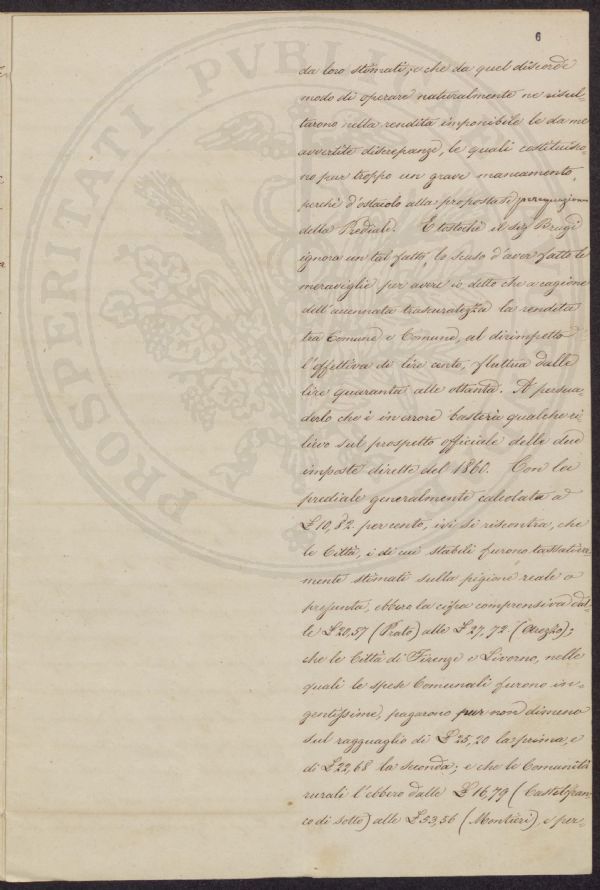 6
PROSPERITATI PVBLI
da loro stimati; e che da quel discorde
modo di operare naturalmente ne risul-
tarono nella rendita imponibile le da me
avvertite discrepanze, le quali costituisco-
no pur troppo un grave mancamento,
perchè d'ostacolo alla propostasi perequazione
della Prediale. E tostochè il sig Brugi
ignora un tal fatto, lo scuso d'aver fatto le
meraviglie per avere io detto che a cagione
dell'accennata trascuratezza la rendita
tra Comune e Comune, al dirimpetto
l'effettiva di lire cento, fluttua dalle
lire quaranta alle ottanta. A persua-
derlo che è in errore basterà qualche ri-
lievo sul prospetto officiale delle due
imposte dirette del 1860. Con la
prediale generalmente calcolata a
£ 10,82. per cento, ivi si riscontra, che
le Città, i di cui stabili furono tassativa
mente stimati sulla pigione reale o
presunta, ebbero la cifra comprensiva dal-
le £ 20,57 (Prato) alle £ 27,72 (Arezzo);
che le Città di Firenze e Livorno, nelle
quali le spese Comunali furono in-
gentissime, pagarono pur non dimeno
sul ragguaglio di £ 25,20 la prima, e
di £ 22,68 la seconda; e che le Comunità
rurali l'ebbero dalle £ 16,79 (Castelfran
co di sotto) alle £ 53,56 (Montieri) e per-